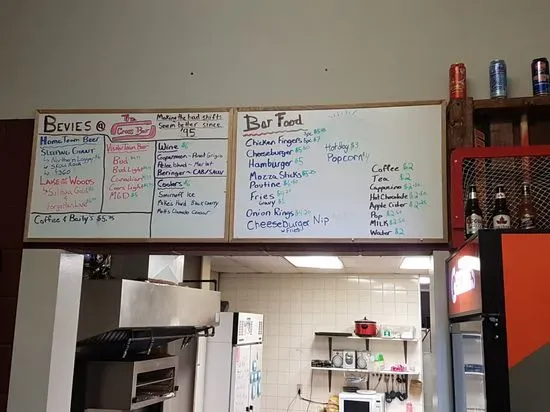 BEVIES @
The
Cross Bar
Making the bad shifts
Seem better since
'95
HomeTown Beer
Sleeping Giant
Northern Logger
360
Lake of the Woods
Sultana Gold
Forgotten Lake
Visitor Town Beer
Bud
Bud Light
Canadian
Coors Light
MGD
Coffee & Baily's $5.75
Wine
Copper moon - Pinot Grigio
Pelee Island - Merlot
Beringer - CAB/SAUV
Coolers
Smirnoff Ice
Mike's Hard Black Cherry
Mott's Clamato Caesar
Bar Food
Chicken Fingers
Cheeseburger
Hamburger $5
Mozza Sticks
Poutine
Fries
Gravy
Onion Rings
Cheeseburger Nip
w Fries
Hotdog $3
Popcorn
Coffee $2
Tea $2
Cappuccino
Hot Chocolate
Apple Cider
Pop
Milk
Water $2